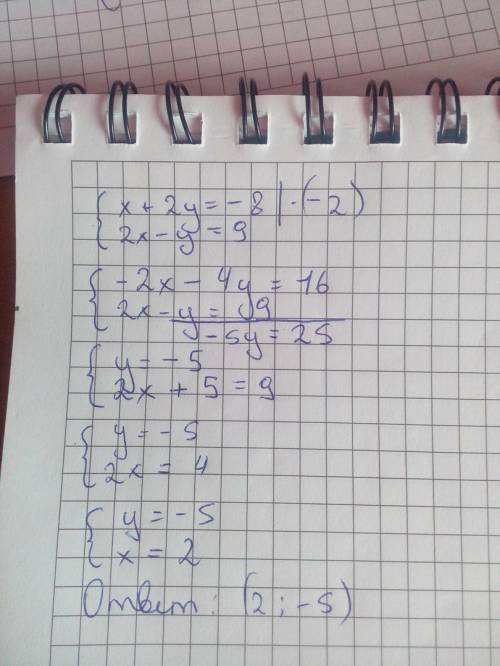 { x + 2y = -8 | · (-2)
{ 2x - y = 9
{ -2x - 4y = 16
{ 2x - y = 9
-5y = 25
{ y = -5
{ 2x + 5 = 9
{ y = -5
{ 2x = 4
{ y = -5
{ x = 2
Ответ: (2; -5)